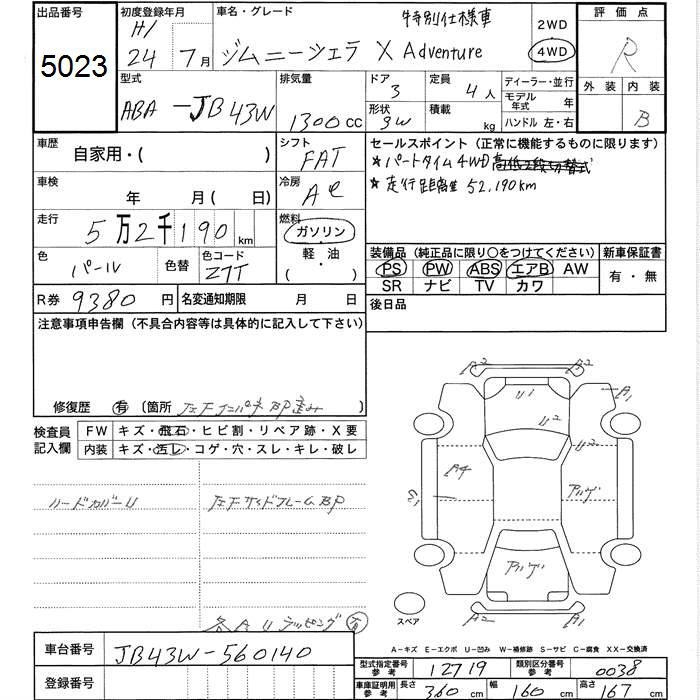 出品番号 初度登録年月 車名・グレード 特別仕様車 2WD 評価点
5023 H/24 7月 ジムニーシエラ X Adventure 4WD R
型式 排気量 ドア 定員 ディーラー・並行 外装 内装
ABA-JB43W 1300cc 3 4人 モデル年式 年 B
形状 3W 積載 kg ハンドル 左・右
車歴 シフト セールスポイント (正常に機能するものに限ります)
自家用・( ) FAT ★パートタイム4WD高低2段切替式
車検 冷房 ★走行距離 52,190km
年 月 (日) AC
走行 燃料
5万2千190km ガソリン
色 色替 色コード 軽・油 装備品 (純正品に限り○をつけてください) 新車保証書
パール Z7T ( ) PS PW ABS エアB AW 有・無
SR ナビ TV カワ
R券 9380円 名変通知期限 月 日 後日品
注意事項申告欄 (不具合内容等は具体的に記入して下さい)
修復歴 有 〔箇所
検査員 FW キズ・飛石・ヒビ割・リペア跡・X要
記入欄 内装 キズ・汚レ・コゲ・穴・スレ・キレ・破レ
A2 A2
U1 A1
U2
A4 U2
A2 A1
スペア
A-キズ E-エクボ U-凹み W-補修跡 S-サビ C-腐食 XX-交換済
車台番号 JB43W-560140
型式指定番号 参考 12719 類別区分番号 参考 0038
登録番号
車庫証明用 参考 長さ 360cm 幅 160cm 高さ 167cm